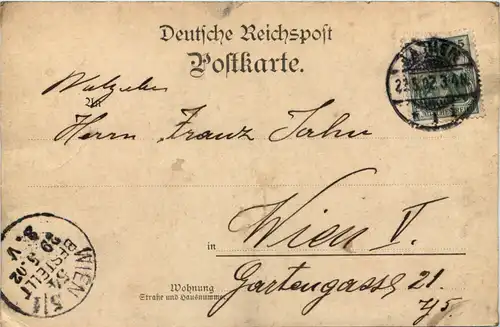 Deutsche Reichspost
Postkarte.
An
Herrn Franz Jahn
in Wien V.
Wohnung
Straße und Hausnummer
Gartengasse 21.
WIEN 5/1
BESTELLT
29.5.02
8.V